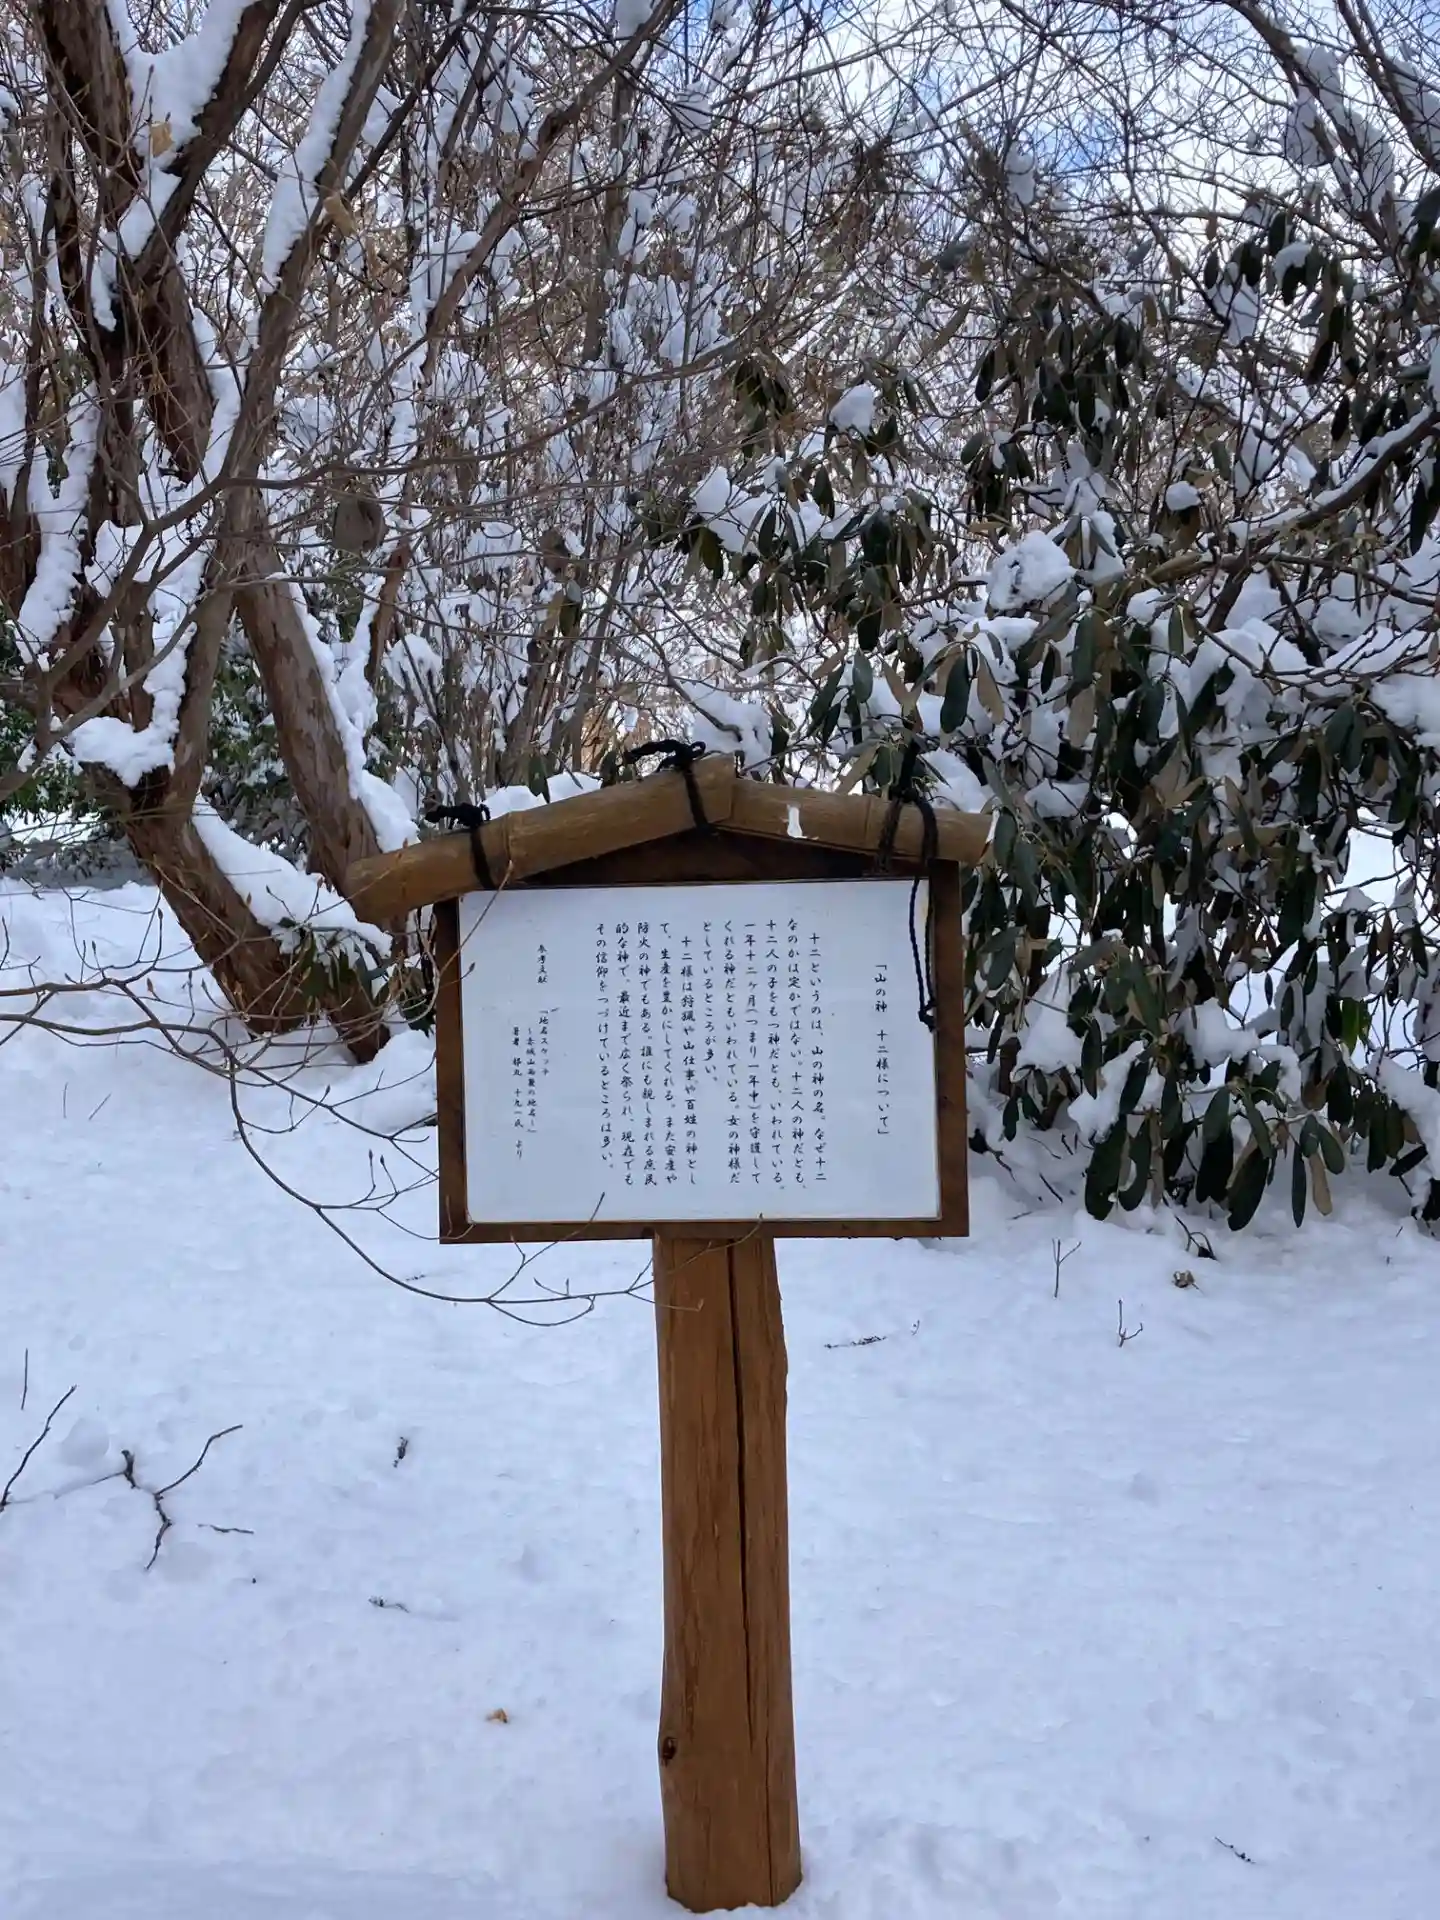 「山の神　十二様について」
十二というのは、山の神の名。なぜ十二
なのかは定かではない。十二人の神だとも、
十二人の子をもつ神だとも、いわれている。
一年十二ヶ月(つまり一年中)を守護して
くれる神だともいわれている。女の神様だ
としているところが多い。
十二様は狩猟や山仕事や百姓の神とし
て、生産を豊かにしてくれる。また安産や
防火の神でもある。誰にも親しまれる庶民
的な神で、最近まで広く祭られ、現在でも
その信仰をつづけているところは多い。
参考文献　「地名スケッチ
～赤城山南麓の地名～」
著者　都丸　十九一氏　より